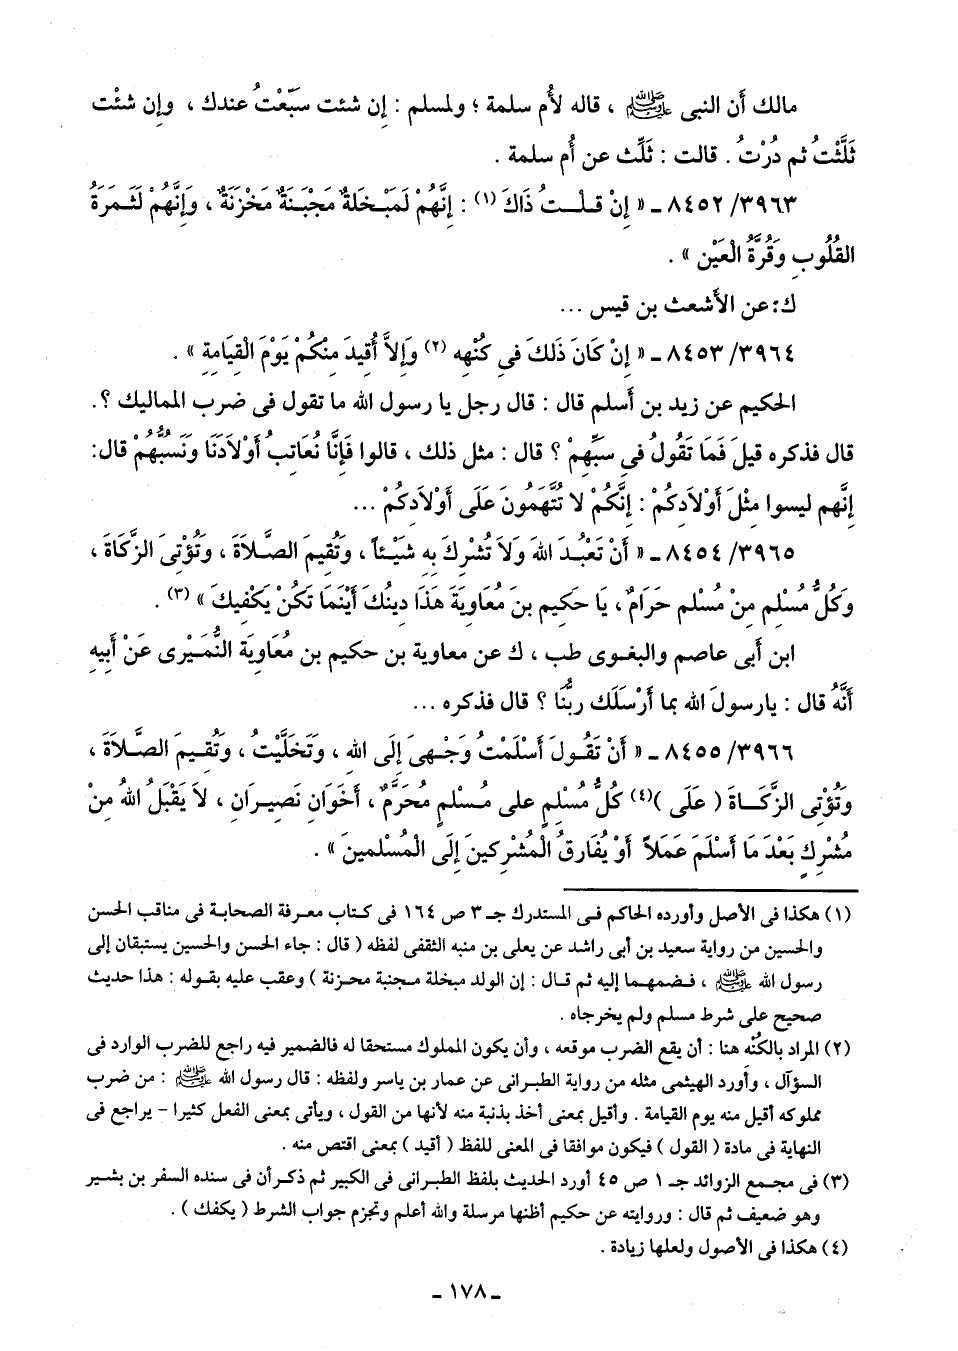 مالك أن النبى ﷺ ، قاله لأُم سلمة ؛ ولمسلم : إن شئت سَبَّعْتُ عندك ، وإن شئْت
ثَلَّثْتُ ثم دُرْتُ . قالت : ثَلِّث عن أُم سلمة .
٨٤٥٢/٣٩٦٣ ـ « إِنْ قـلـــتُ ذَاكَ (١) : إِنَّهُمْ لَمَبْـخَلَةٌ مَجْبَنَةٌ مَخْزَنَةٌ ، وَإِنَّهُمْ لَثَـمَرَةُ
القُلُوبِ وَقُرَّةُ الْعَيْنِ » .
ك: عن الأشعث بن قيس ...
٨٤٥٣/٣٩٦٤ ـ « إِنْ كَانَ ذَلكَ فى كُنْهِه (٢) وَإِلاَّ أُقِيدَ مِنْكُمْ يَوْمَ الْقِيَامَةِ » .
الحكيم عن زيد بن أسلم قال : قال رجل يا رسول الله ما تقول فى ضرب المماليك ؟.
قال فذكره قيلَ فَمَا تَقُولُ فى سَبِّهِمْ ؟ قال : مثل ذلك ، قالوا فَإِنَّا نُعَاتبُ أَوْلاَدَنَا وَنَسُبُّهُمْ قال:
إِنَّهم ليسوا مثْلَ أَوْلاَدِكُمْ : إِنَّكُمْ لا تُتَّهَمُونَ عَلَى أَوْلاَدِكُمْ ...
٨٤٥٤/٣٩٦٥ ـ « أَنْ تَعْبُـدَ اللهَ وَلاَ تُشْرِكَ بِهِ شَيْـئاً ، وَتُقِيمَ الصَّـلاَةَ ، وَتُؤْتِىَ الزَّكَاةَ ،
وَكُلُّ مُسْلِمٍ مِنْ مُسْلم حَرَامٌ ، يَا حَكِيم بنَ مُعَاوِيَةَ هَذَا دِينُكَ أَيْنَمَا تَكُنْ يَكْفِيكَ » (٣) .
ابن أبى عاصم والبغـوى طب ، ك عن معاوية بن حكيم بن مُعَاوِيَة النُّمَيْرِى عَنْ أَبِيه
أَنَّهُ قال : يارسولَ الله بما أَرْسَلَك ربُّنَا ؟ قال فذكره ...
٨٤٥٥/٣٩٦٦ ـ « أَنْ تَقُولَ أَسْلَمْتُ وَجْـهِىَ إِلَى الله ، وَتَخَلَّيْتُ ، وَتُقِيـمَ الصَّـلاَةَ ،
وَتُؤْتِى الزَّكَــاةَ ( عَلَى )(٤) كُلُّ مُسْلِمٍ على مُـسْلمٍ مُحَرَّمٌ ، أَخَوَانِ نَصِيـرَانِ ، لاَ يَقْبَلُ اللهُ مِنْ
مُشْرِكٍ بَعْدَ مَا أَسْلَمَ عَمَلاً أَوْ يُفَارِقُ الْمُشْرِكينَ إِلَى الْمُسْلمينَ » .
(١) هكذا فى الأصل وأورده الحاكم فـى المستدرك جـ ٣ ص ١٦٤ فى كـتاب معرفة الصحابـة فى مناقب الحسن
والحسين من رواية سعيد بن أبى راشد عن يعلى بن منبه الثقفى لفظه ( قال : جاء الحسن والحسين يستبقان إلى
رسول الله ﷺ ، فـضمهـمـا إليه ثم قـال : إن الولد مبخلة مـجنبة محـزنة ) وعقب عليه بقـوله : هذا حديث
صحيح على شرط مسلم ولم يخرجاه .
(٢) المراد بالكُنْه هنا : أن يقع الضرب موقعه ، وأن يكون المملوك مستحقا له فالضمير فيه راجع للضرب الوارد فى
السؤآل ، وأورد الهيثمى مثله من رواية الطبرانى عن عمار بن ياسر ولفظه : قال رسول الله ﷺ : من ضرب
مملوكه أقيل منه يوم القيامة . وأقيل بمعنى أخذ بذنبة منه لأنها من القول ، ويأتى بمعنى الفعل كثيرا – يراجع فى
النهاية فى مادة ( القول ) فيكون موافقا فى المعنى للفظ ( أقيد ) بمعنى اقتص منه .
(٣) فى مجـمع الزوائد جـ ١ ص ٤٥ أورد الحديث بلفظ الطبرانى فى الكبير ثم ذكـر أن فى سنده السفر بن بشير
وهو ضعيف ثم قال : وروايته عن حكيم أظنها مرسلة والله أعلم وتجزم جواب الشرط ( يكفك ) .
(٤) هكذا فى الأصول ولعلها زيادة .
ـ ١٧٨ ـ